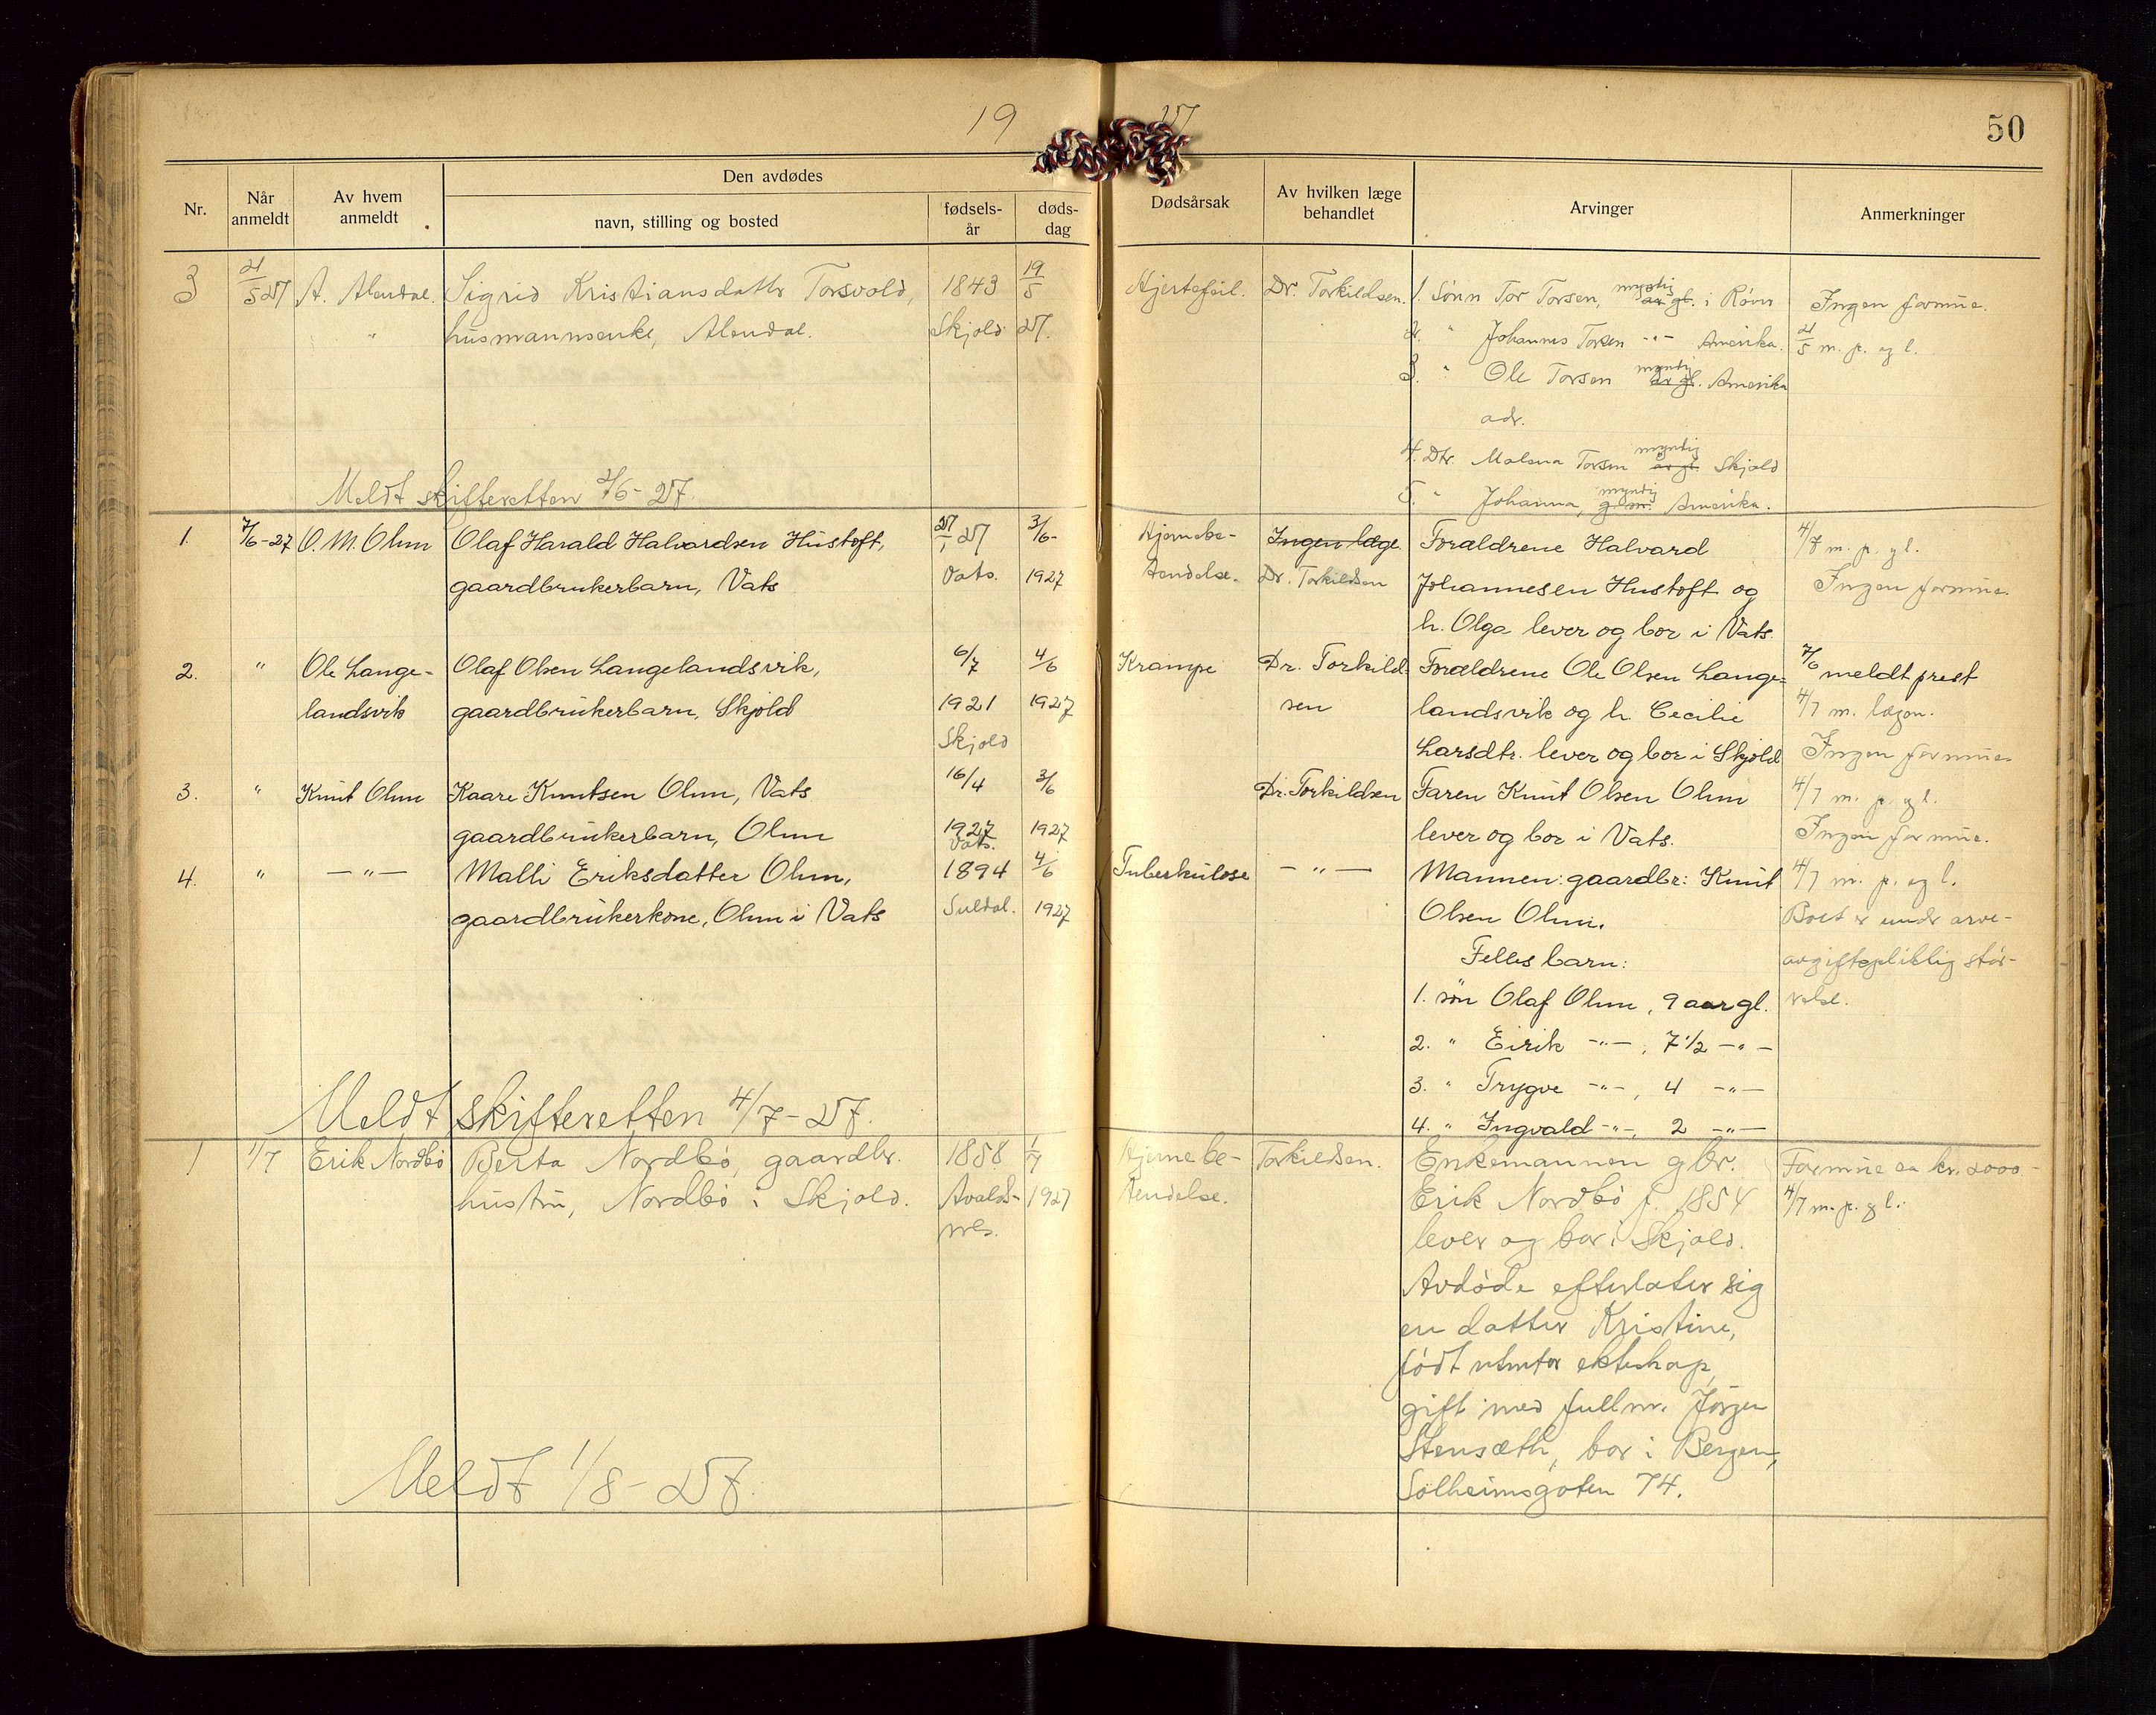 19 27
50
Nr.
Når anmeldt
Av hvem anmeldt
Den avdødes
navn, stilling og bosted
fødsels-år
døds-dag
Dødsårsak
Av hvilken læge behandlet
Arvinger
Anmerkninger
3 21/5 27 A. Alendal. Sigrid Kristiansdatter Torsvold, 1843 19/5 Hjertefeil. Dr. Torkildsen. 1. Sønn Tor Torsen, myndig i Røvær Ingen formue.
" husmannsenke, Alendal. Skjold 27. 2. " Johannes Torsen -"- Amerika. 21/5 m. p. og l.
3. " Ole Torsen myndig Amerika
adr.
4. Dtr. Malena Torsen myndig Skjold
Meldt skifteretten 7/6-27. 5. " Johanna, myndig Amerika.
1. 7/6-27 O. M. Ohm Olaf Harald Halvardsen Hustoft, 27/1 27 3/6- Hjernebe- Ingen læge Forældrene Halvard 4/7 m. p. og l.
gaardbrukerbarn, Vats Vats. 1927 tendelse. Dr. Torkildsen Johannesen Hustoft og Ingen formue.
h. Olga lever og bor i Vats.
2. " Ole Lange- Olaf Olsen Langelandsvik, 6/7 4/6 Krampe Dr. Torkild- Forældrene Ole Olsen Lange- 7/6 meldt prest
landsvik gaardbrukerbarn, Skjold 1921 1927 sen landsvik og h. Cecilie 4/7 m. lægen.
Skjold Larsdtr. lever og bor i Skjold Ingen formue
3. " Knut Ohm Kaare Knutsen Ohm, Vats 16/4 3/6 Dr. Torkildsen Faren Knut Olsen Ohm 4/7 m. p. og l.
gaardbrukerbarn, Ohm 1927 1927 lever og bor i Vats. Ingen formue.
Vats.
4. " -"- Malli Eriksdatter Ohm, 1894 4/6 Tuberkulose -"- Mannen: gaardbr: Knut 4/7 m. p. og l.
gaardbrukerkone, Ohm i Vats Suldal. 1927 Olsen Ohm. Boet er under arve-
Felles barn: avgiftspliktig stør-
1. søn Olaf Ohm, 9 aar gl. relse.
2. " Eirik -"-, 7 1/2 -"-
3. " Trygve -"-, 4 -"-
Meldt skifteretten 4/7-27.
4. " Ingvald -"-, 2 -"-
1 1/7 Erik Nordbø Berta Nordbø, gaardbr. 1858 1/7 Hjernebe- Torkildsen. Enkemannen gbr. Formue ca kr. 2000.-
hustru, Nordbø i Skjold. Avalds- 1927 tendelse. Erik Nordbø f. 1854 4/7 m. p. og l.
nes. lever og bor i Skjold.
Avdøde efterlater sig
en datter Kristine,
født utenfor ekteskap,
gift med fullm. Jörgen
Stensæth, bor i Bergen,
Solheimsgaten 74.
Meldt 1/8-27